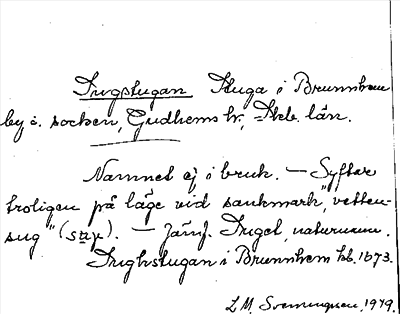 Sugstugan Stuga i Brunnhem
by o. socken, Gudhems hr, Skb. län.
Namnet ej i bruk. – Syftar
troligen på läge vid sankmark, "vatten-
sug" (suy). – Jämf. Sugel, naturnamn.
Sughstugan i Brunnhem kb. 1673.
L.M. Svenungsson, 1979.